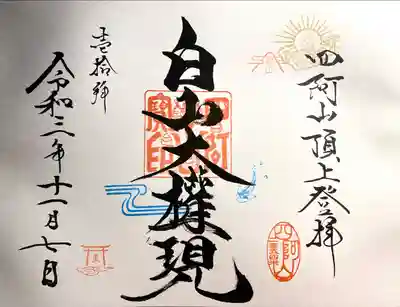 四阿山頂上登拝
白山大権現
壱拾
令和三年十一月七日
寶印